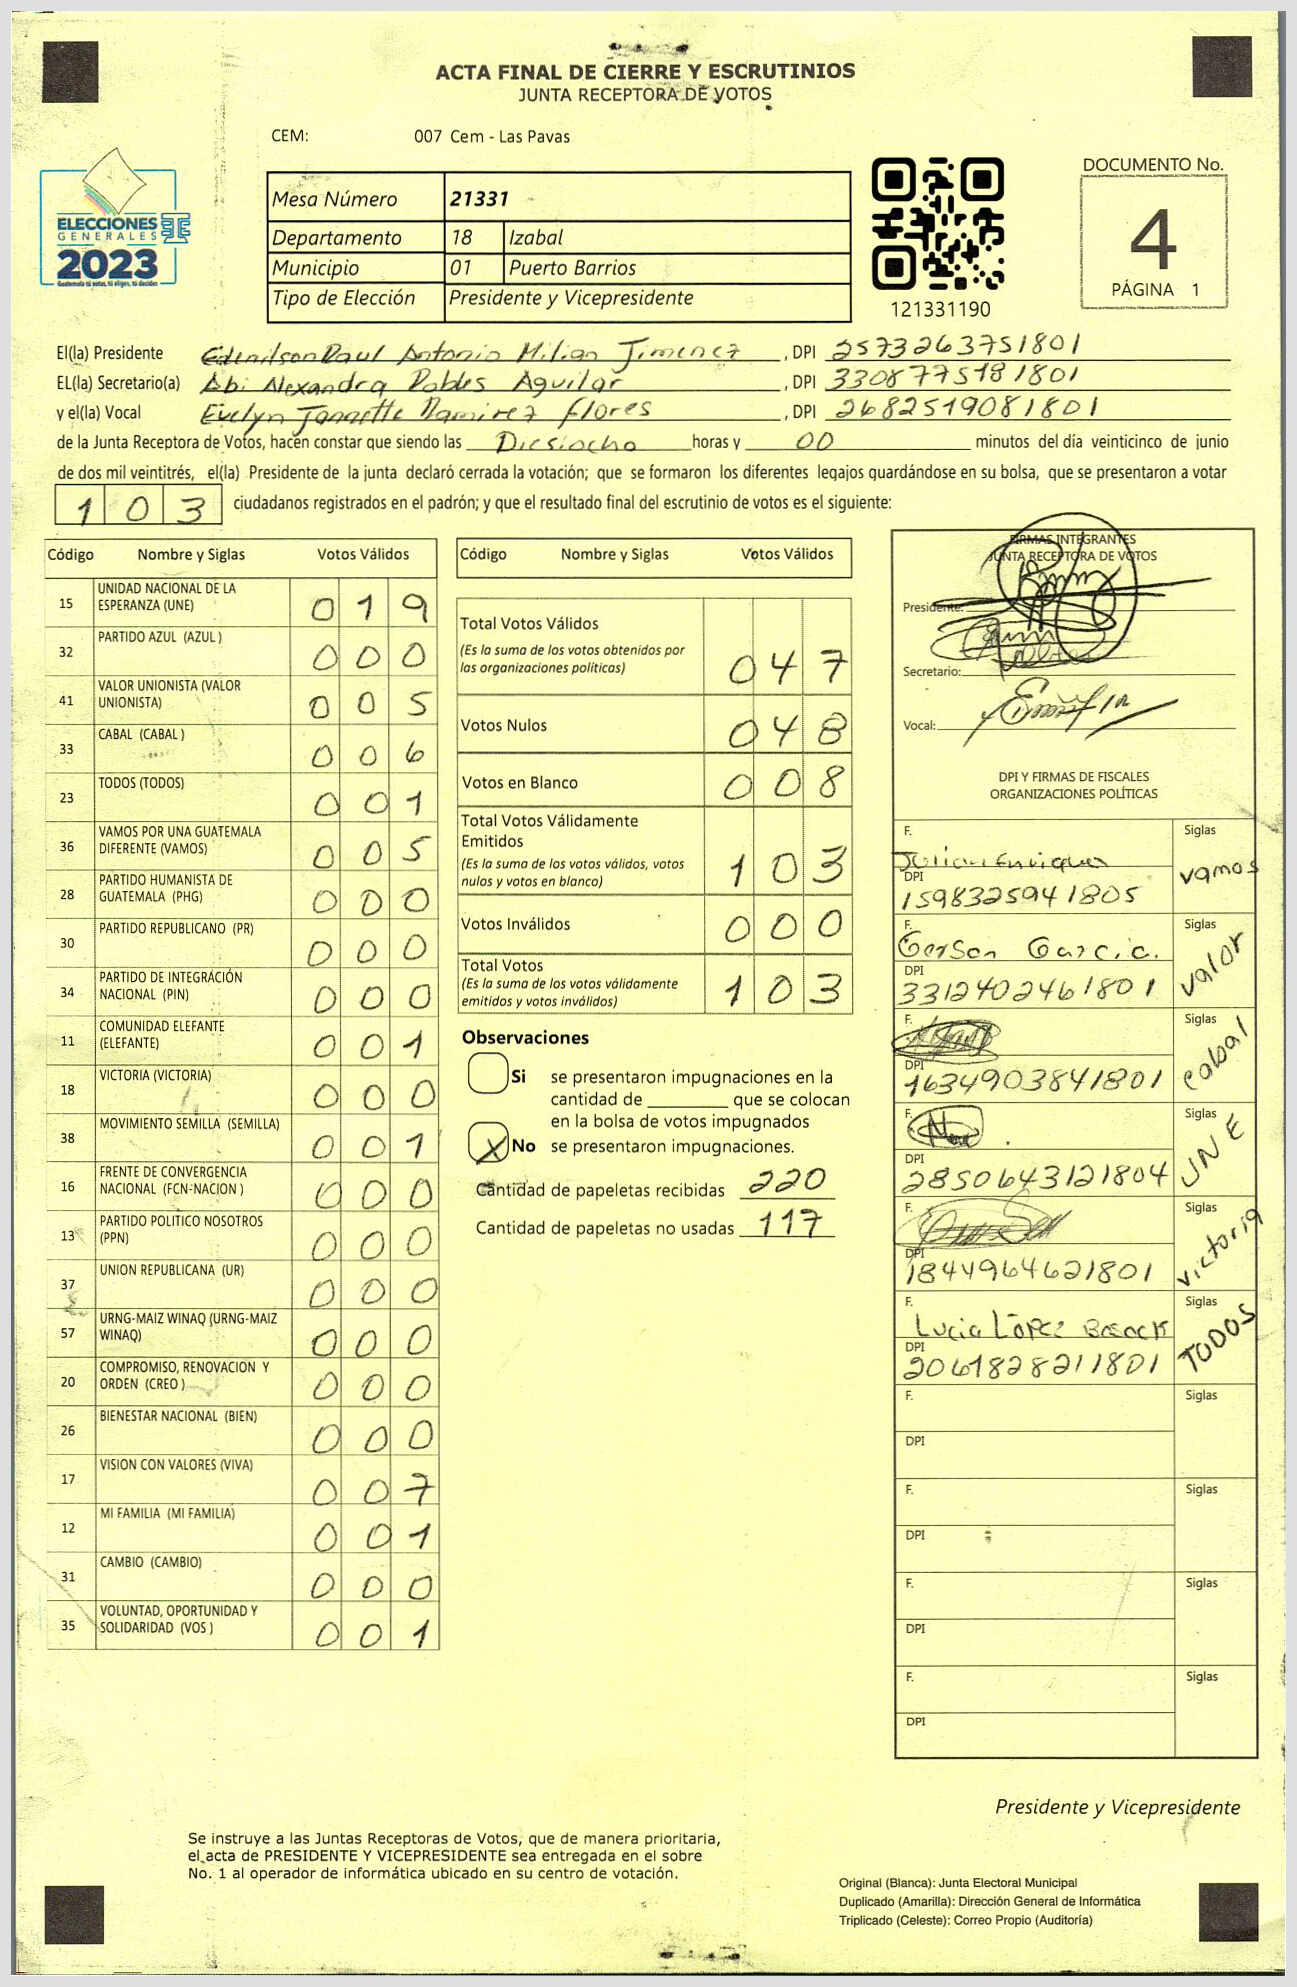 ACTA FINAL DE CIERRE Y ESCRUTINIOS
JUNTA RECEPTORA DE VOTOS
CEM: 007 Cem - Las Pavas
ELECCIONES
GENERALES
2023
Guatemala tú votas, tú eliges, tú decides
Mesa Número 21331
Departamento 18 Izabal
Municipio 01 Puerto Barrios
Tipo de Elección Presidente y Vicepresidente
121331190
DOCUMENTO No.
4
PÁGINA 1
El(la) Presidente Edenilson Raul Antonio Milian Jimenez , DPI 2573263751801
EL(la) Secretario(a) Abi Alexandra Robles Aguilar , DPI 3308775181801
y el(la) Vocal Evelyn Jannette Ramirez Flores , DPI 2682519081801
de la Junta Receptora de Votos, hacen constar que siendo las Diesiocho horas y 00 minutos del día veinticinco de junio
de dos mil veintitrés, el(la) Presidente de la junta declaró cerrada la votación; que se formaron los diferentes legajos guardándose en su bolsa, que se presentaron a votar
103 ciudadanos registrados en el padrón; y que el resultado final del escrutinio de votos es el siguiente:
Código Nombre y Siglas Votos Válidos
15 UNIDAD NACIONAL DE LA ESPERANZA (UNE) 019
32 PARTIDO AZUL (AZUL ) 000
41 VALOR UNIONISTA (VALOR UNIONISTA) 005
33 CABAL (CABAL ) 006
23 TODOS (TODOS) 001
36 VAMOS POR UNA GUATEMALA DIFERENTE (VAMOS) 005
28 PARTIDO HUMANISTA DE GUATEMALA (PHG) 000
30 PARTIDO REPUBLICANO (PR) 000
34 PARTIDO DE INTEGRACIÓN NACIONAL (PIN) 000
11 COMUNIDAD ELEFANTE (ELEFANTE) 001
18 VICTORIA (VICTORIA) 000
38 MOVIMIENTO SEMILLA (SEMILLA) 001
16 FRENTE DE CONVERGENCIA NACIONAL (FCN-NACION ) 000
13 PARTIDO POLITICO NOSOTROS (PPN) 000
37 UNION REPUBLICANA (UR) 000
57 URNG-MAIZ WINAQ (URNG-MAIZ WINAQ) 000
20 COMPROMISO, RENOVACION Y ORDEN (CREO ) 000
26 BIENESTAR NACIONAL (BIEN) 000
17 VISION CON VALORES (VIVA) 007
12 MI FAMILIA (MI FAMILIA) 001
31 CAMBIO (CAMBIO) 000
35 VOLUNTAD, OPORTUNIDAD Y SOLIDARIDAD (VOS ) 001
Código Nombre y Siglas Votos Válidos
Total Votos Válidos
(Es la suma de los votos obtenidos por
las organizaciones politicas) 047
Votos Nulos 048
Votos en Blanco 008
Total Votos Válidamente
Emitidos
(Es la suma de los votos válidos, votos
nulos y votos en blanco) 103
Votos Inválidos 000
Total Votos
(Es la suma de los votos válidamente
emitidos y votos inválidos) 103
Observaciones
Si se presentaron impugnaciones en la
cantidad de ________ que se colocan
en la bolsa de votos impugnados
X No se presentaron impugnaciones.
Cantidad de papeletas recibidas 220
Cantidad de papeletas no usadas 117
FIRMAS INTEGRANTES
JUNTA RECEPTORA DE VOTOS
Presidente:
Secretario:
Vocal:
DPI Y FIRMAS DE FISCALES
ORGANIZACIONES POLÍTICAS
F. Julian Enrique Siglas
DPI 1598325941805 vamos
F. Gerson Garcia. Siglas
DPI 3312402461801 valor
F. Siglas
DPI 1634903841801 cabal
F. Siglas
DPI 2850643121804 UNE
F. Siglas
DPI 1844964621801 victoria
F. Lucia López Siglas
DPI 2061828211801 TODOS
F. Siglas
DPI
F. Siglas
DPI
F. Siglas
DPI
F. Siglas
DPI
Presidente y Vicepresidente
Se instruye a las Juntas Receptoras de Votos, que de manera prioritaria,
el acta de PRESIDENTE Y VICEPRESIDENTE sea entregada en el sobre
No. 1 al operador de informática ubicado en su centro de votación.
Original (Blanca): Junta Electoral Municipal
Duplicado (Amarilla): Dirección General de Informática
Triplicado (Celeste): Correo Propio (Auditoría)